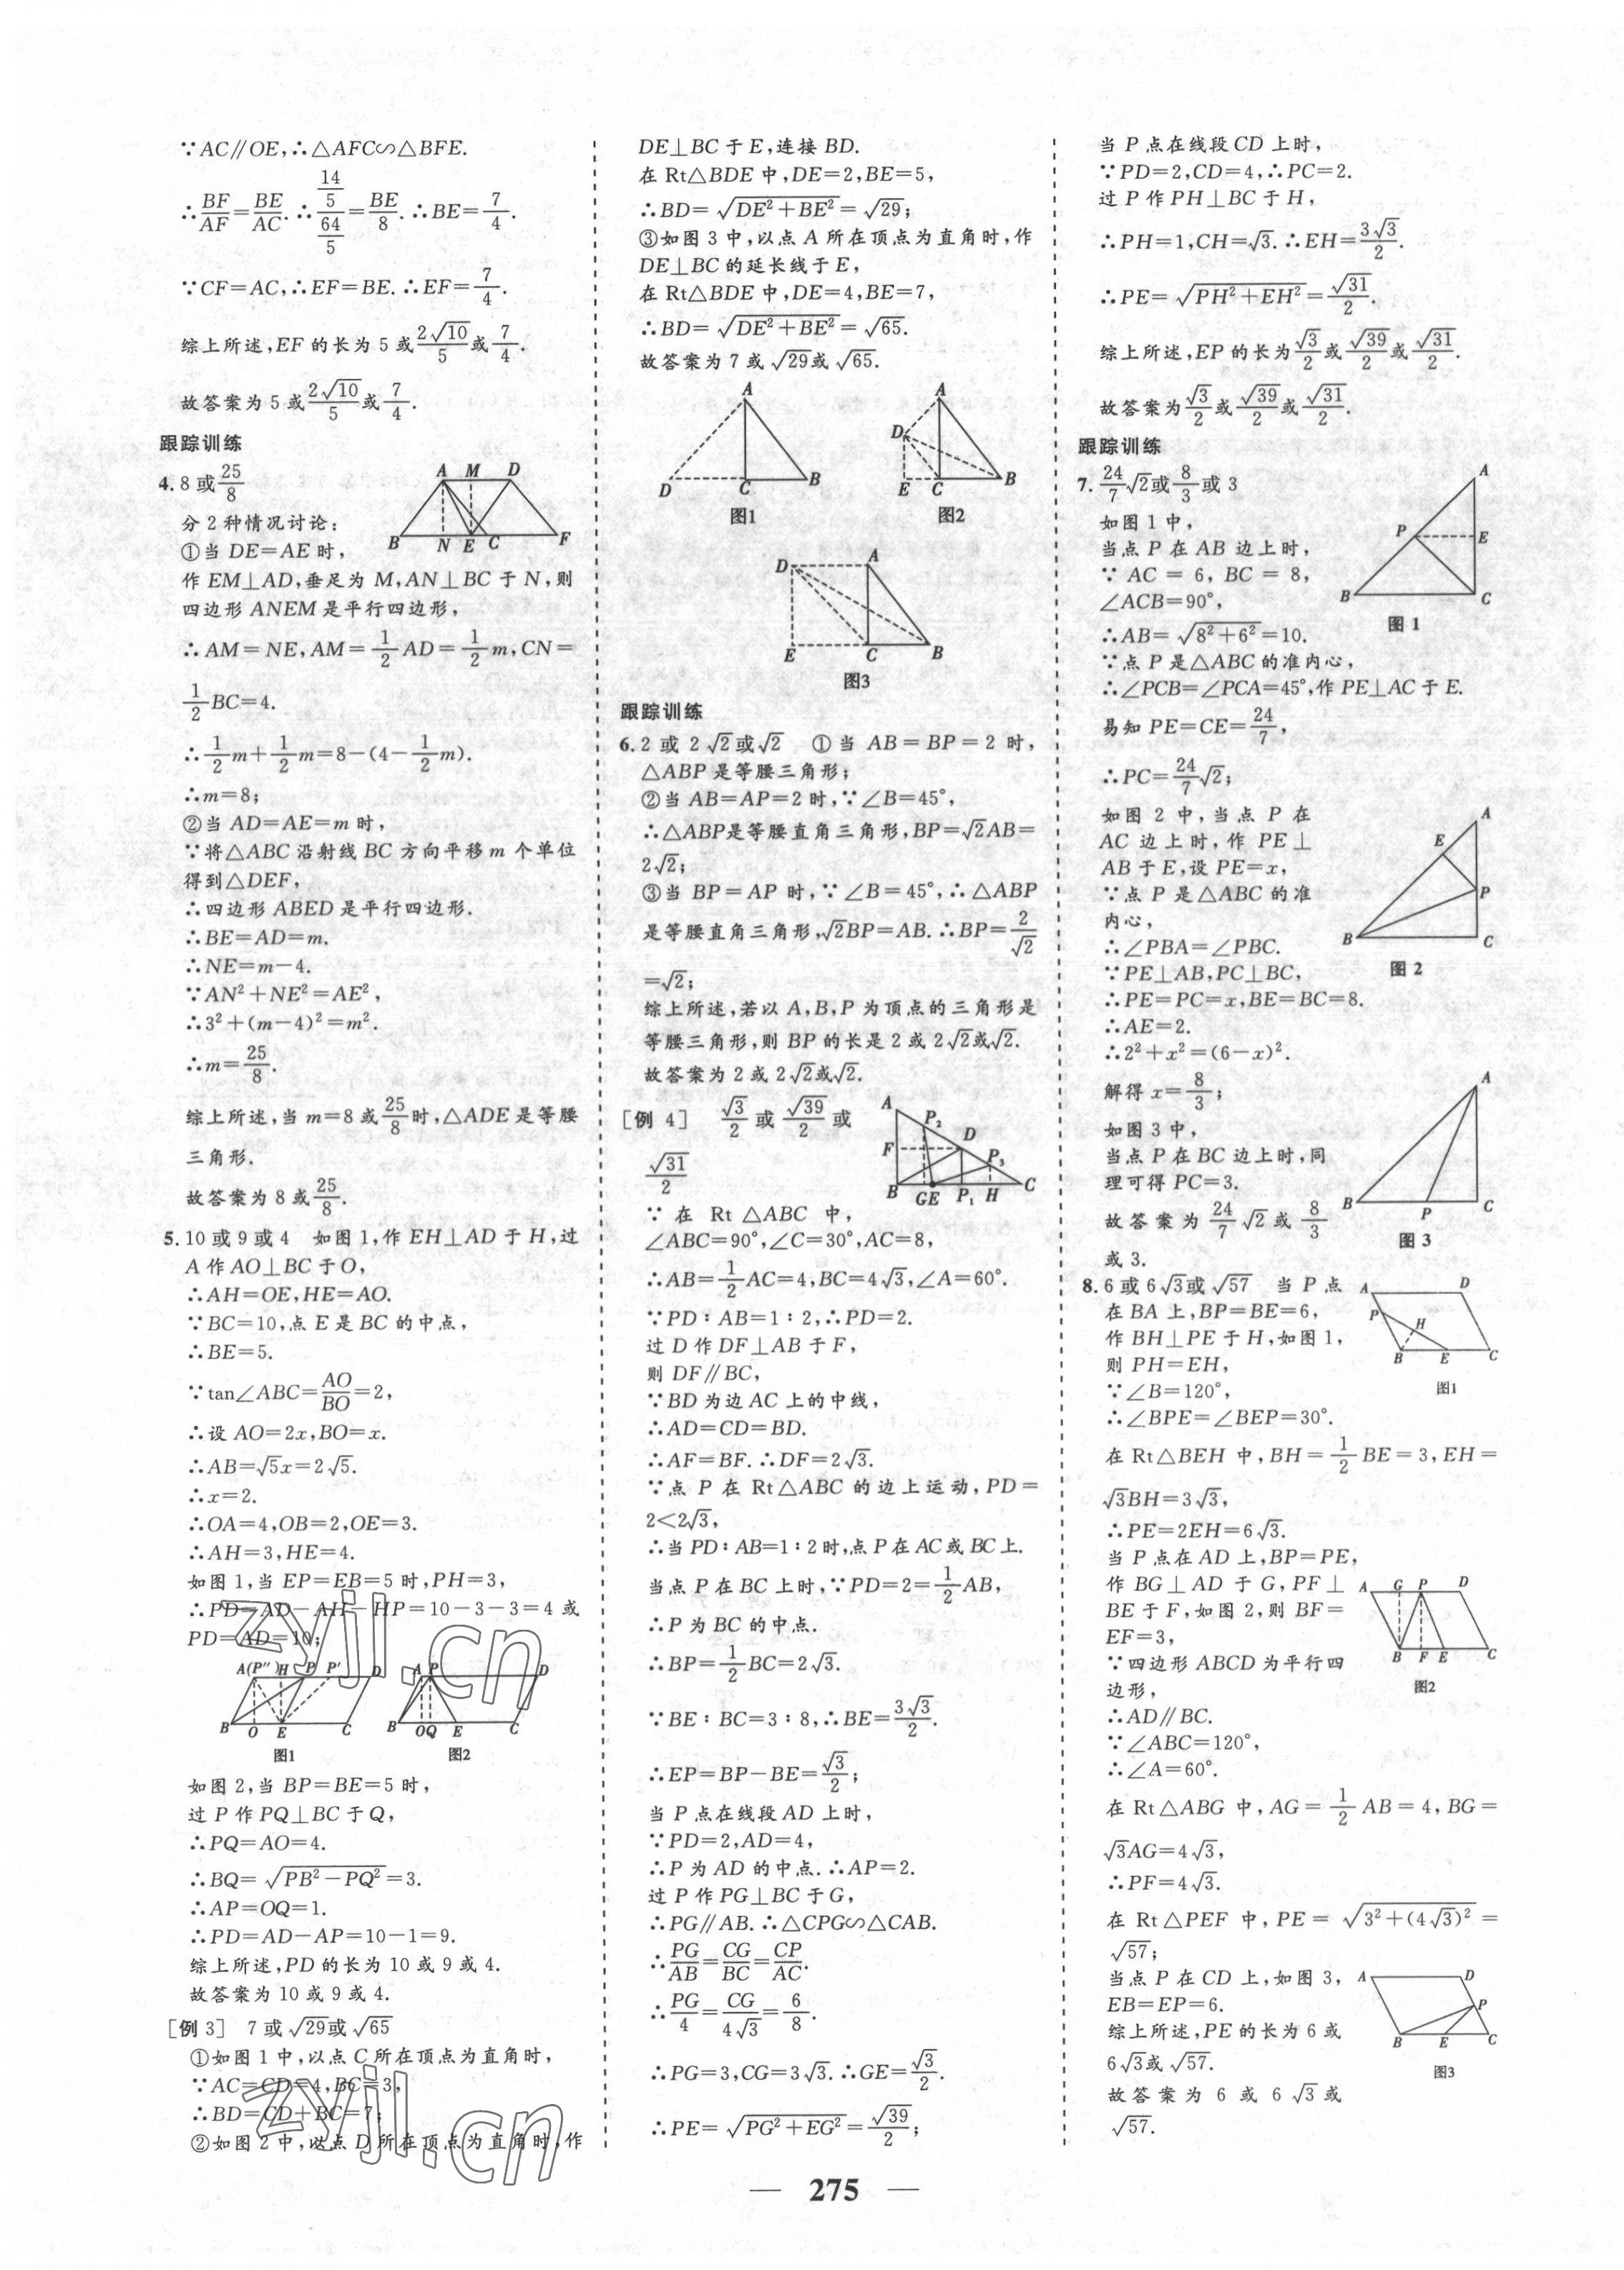 ∵AC∥OE,∴△AFC∽△BFE.
∴BF/AF=BE/AC.∴(14/5)/(64/5)=BE/8.∴BE=7/4.
∵CF=AC,∴EF=BE.∴EF=7/4.
综上所述,EF的长为5或2√10/5或7/4.
故答案为5或2√10/5或7/4.
跟踪训练
4.8或25/8
分2种情况讨论:
①当DE=AE时,
A M D
B N E C F
作EM⊥AD,垂足为M,AN⊥BC于N,则
四边形ANEM是平行四边形,
∴AM=NE,AM=1/2AD=1/2m,CN=
1/2BC=4.
∴1/2m+1/2m=8-(4-1/2m).
∴m=8;
②当AD=AE=m时,
∵将△ABC沿射线BC方向平移m个单位
得到△DEF,
∴四边形ABED是平行四边形.
∴BE=AD=m.
∴NE=m-4.
∵AN²+NE²=AE²,
∴3²+(m-4)²=m².
∴m=25/8.
综上所述,当m=8或25/8时,△ADE是等腰
三角形.
故答案为8或25/8.
5.10或9或4 如图1,作EH⊥AD于H,过
A作AO⊥BC于O,
∴AH=OE,HE=AO.
∵BC=10,点E是BC的中点,
∴BE=5.
∵tan∠ABC=AO/BO=2,
∴设AO=2x,BO=x.
∴AB=√5x=2√5.
∴x=2.
∴OA=4,OB=2,OE=3.
∴AH=3,HE=4.
如图1,当EP=EB=5时,PH=3,
∴PD=AD-AH-HP=10-3-3=4或
PD=AD=10;
A(P″) H P P′ D
B O E C
图1
A P D
B O Q E C
图2
如图2,当BP=BE=5时,
过P作PQ⊥BC于Q,
∴PQ=AO=4.
∴BQ=√(PB²-PQ²)=3.
∴AP=OQ=1.
∴PD=AD-AP=10-1=9.
综上所述,PD的长为10或9或4.
故答案为10或9或4.
[例3] 7或√29或√65
①如图1中,以点C所在顶点为直角时,
∵AC=CD=4,BC=3,
∴BD=CD+BC=7;
②如图2中,以点D所在顶点为直角时,作
DE⊥BC于E,连接BD.
在Rt△BDE中,DE=2,BE=5,
∴BD=√(DE²+BE²)=√29;
③如图3中,以点A所在顶点为直角时,作
DE⊥BC的延长线于E,
在Rt△BDE中,DE=4,BE=7,
∴BD=√(DE²+BE²)=√65.
故答案为7或√29或√65.
A
D C B
图1
A
D
E C B
图2
D A
E C B
图3
跟踪训练
6.2或2√2或√2 ①当AB=BP=2时,
△ABP是等腰三角形;
②当AB=AP=2时,∵∠B=45°,
∴△ABP是等腰直角三角形,BP=√2AB=
2√2;
③当BP=AP时,∵∠B=45°,∴△ABP
是等腰直角三角形,√2BP=AB.∴BP=2/√2
=√2;
综上所述,若以A,B,P为顶点的三角形是
等腰三角形,则BP的长是2或2√2或√2.
故答案为2或2√2或√2.
[例4] √3/2或√39/2或
√31/2
A P₂ D
F P₃
B G E P₁ H C
∵在Rt△ABC中,
∠ABC=90°,∠C=30°,AC=8,
∴AB=1/2AC=4,BC=4√3,∠A=60°.
∵PD:AB=1:2,∴PD=2.
过D作DF⊥AB于F,
则DF∥BC,
∵BD为边AC上的中线,
∴AD=CD=BD.
∴AF=BF.∴DF=2√3.
∵点P在Rt△ABC的边上运动,PD=
2<2√3,
∴当PD:AB=1:2时,点P在AC或BC上.
当点P在BC上时,∵PD=2=1/2AB,
∴P为BC的中点.
∴BP=1/2BC=2√3.
∵BE:BC=3:8,∴BE=3√3/2.
∴EP=BP-BE=√3/2;
当P点在线段AD上时,
∵PD=2,AD=4,
∴P为AD的中点.∴AP=2.
过P作PG⊥BC于G,
∴PG∥AB.∴△CPG∽△CAB.
∴PG/AB=CG/BC=CP/AC.
∴PG/4=CG/4√3=6/8.
∴PG=3,CG=3√3.∴GE=√3/2.
∴PE=√(PG²+EG²)=√39/2;
当P点在线段CD上时,
∵PD=2,CD=4,∴PC=2.
过P作PH⊥BC于H,
∴PH=1,CH=√3.∴EH=3√3/2.
∴PE=√(PH²+EH²)=√31/2.
综上所述,EP的长为√3/2或√39/2或√31/2.
故答案为√3/2或√39/2或√31/2.
跟踪训练
7.24/7√2或8/3或3
如图1中,
当点P在AB边上时,
∵AC=6,BC=8,
∠ACB=90°,
∴AB=√(8²+6²)=10.
A
P E
B C
图1
∵点P是△ABC的准内心,
∴∠PCB=∠PCA=45°,作PE⊥AC于E.
易知PE=CE=24/7,
∴PC=24/7√2;
如图2中,当点P在
AC边上时,作PE⊥
AB于E,设PE=x,
∵点P是△ABC的准
内心,
∴∠PBA=∠PBC.
A
E
P
B C
图2
∵PE⊥AB,PC⊥BC,
∴PE=PC=x,BE=BC=8.
∴AE=2.
∴2²+x²=(6-x)².
解得x=8/3;
如图3中,
当点P在BC边上时,同
理可得PC=3.
故答案为24/7√2或8/3
或3.
A
B P C
图3
8.6或6√3或√57 当P点
在BA上,BP=BE=6,
作BH⊥PE于H,如图1,
则PH=EH,
∵∠B=120°,
∴∠BPE=∠BEP=30°.
A D
P H
B E C
图1
在Rt△BEH中,BH=1/2BE=3,EH=
√3BH=3√3,
∴PE=2EH=6√3.
当P点在AD上,BP=PE,
作BG⊥AD于G,PF⊥
BE于F,如图2,则BF=
EF=3,
∵四边形ABCD为平行四
边形,
A G P D
B F E C
图2
∴AD∥BC.
∵∠ABC=120°,
∴∠A=60°.
在Rt△ABG中,AG=1/2AB=4,BG=
√3AG=4√3,
∴PF=4√3.
在Rt△PEF中,PE=√(3²+(4√3)²)=
√57;
当点P在CD上,如图3,
EB=EP=6.
综上所述,PE的长为6或
6√3或√57.
故答案为6或6√3或
√57.
A D
P
B E C
图3
zyjl.cn
zyjl.cn
— 275 —